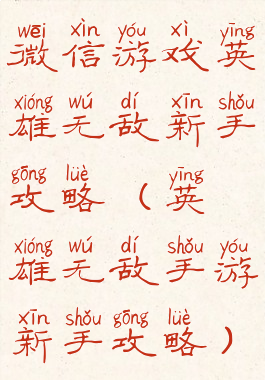 wēi xìn yóu xì yīng
微信游戏英
xióng wú dí xīn shǒu
雄无敌新手
gōng lüè yīng
攻略（英
xióng wú dí shǒu yóu
雄无敌手游
xīn shǒu gōng lüè
新手攻略）